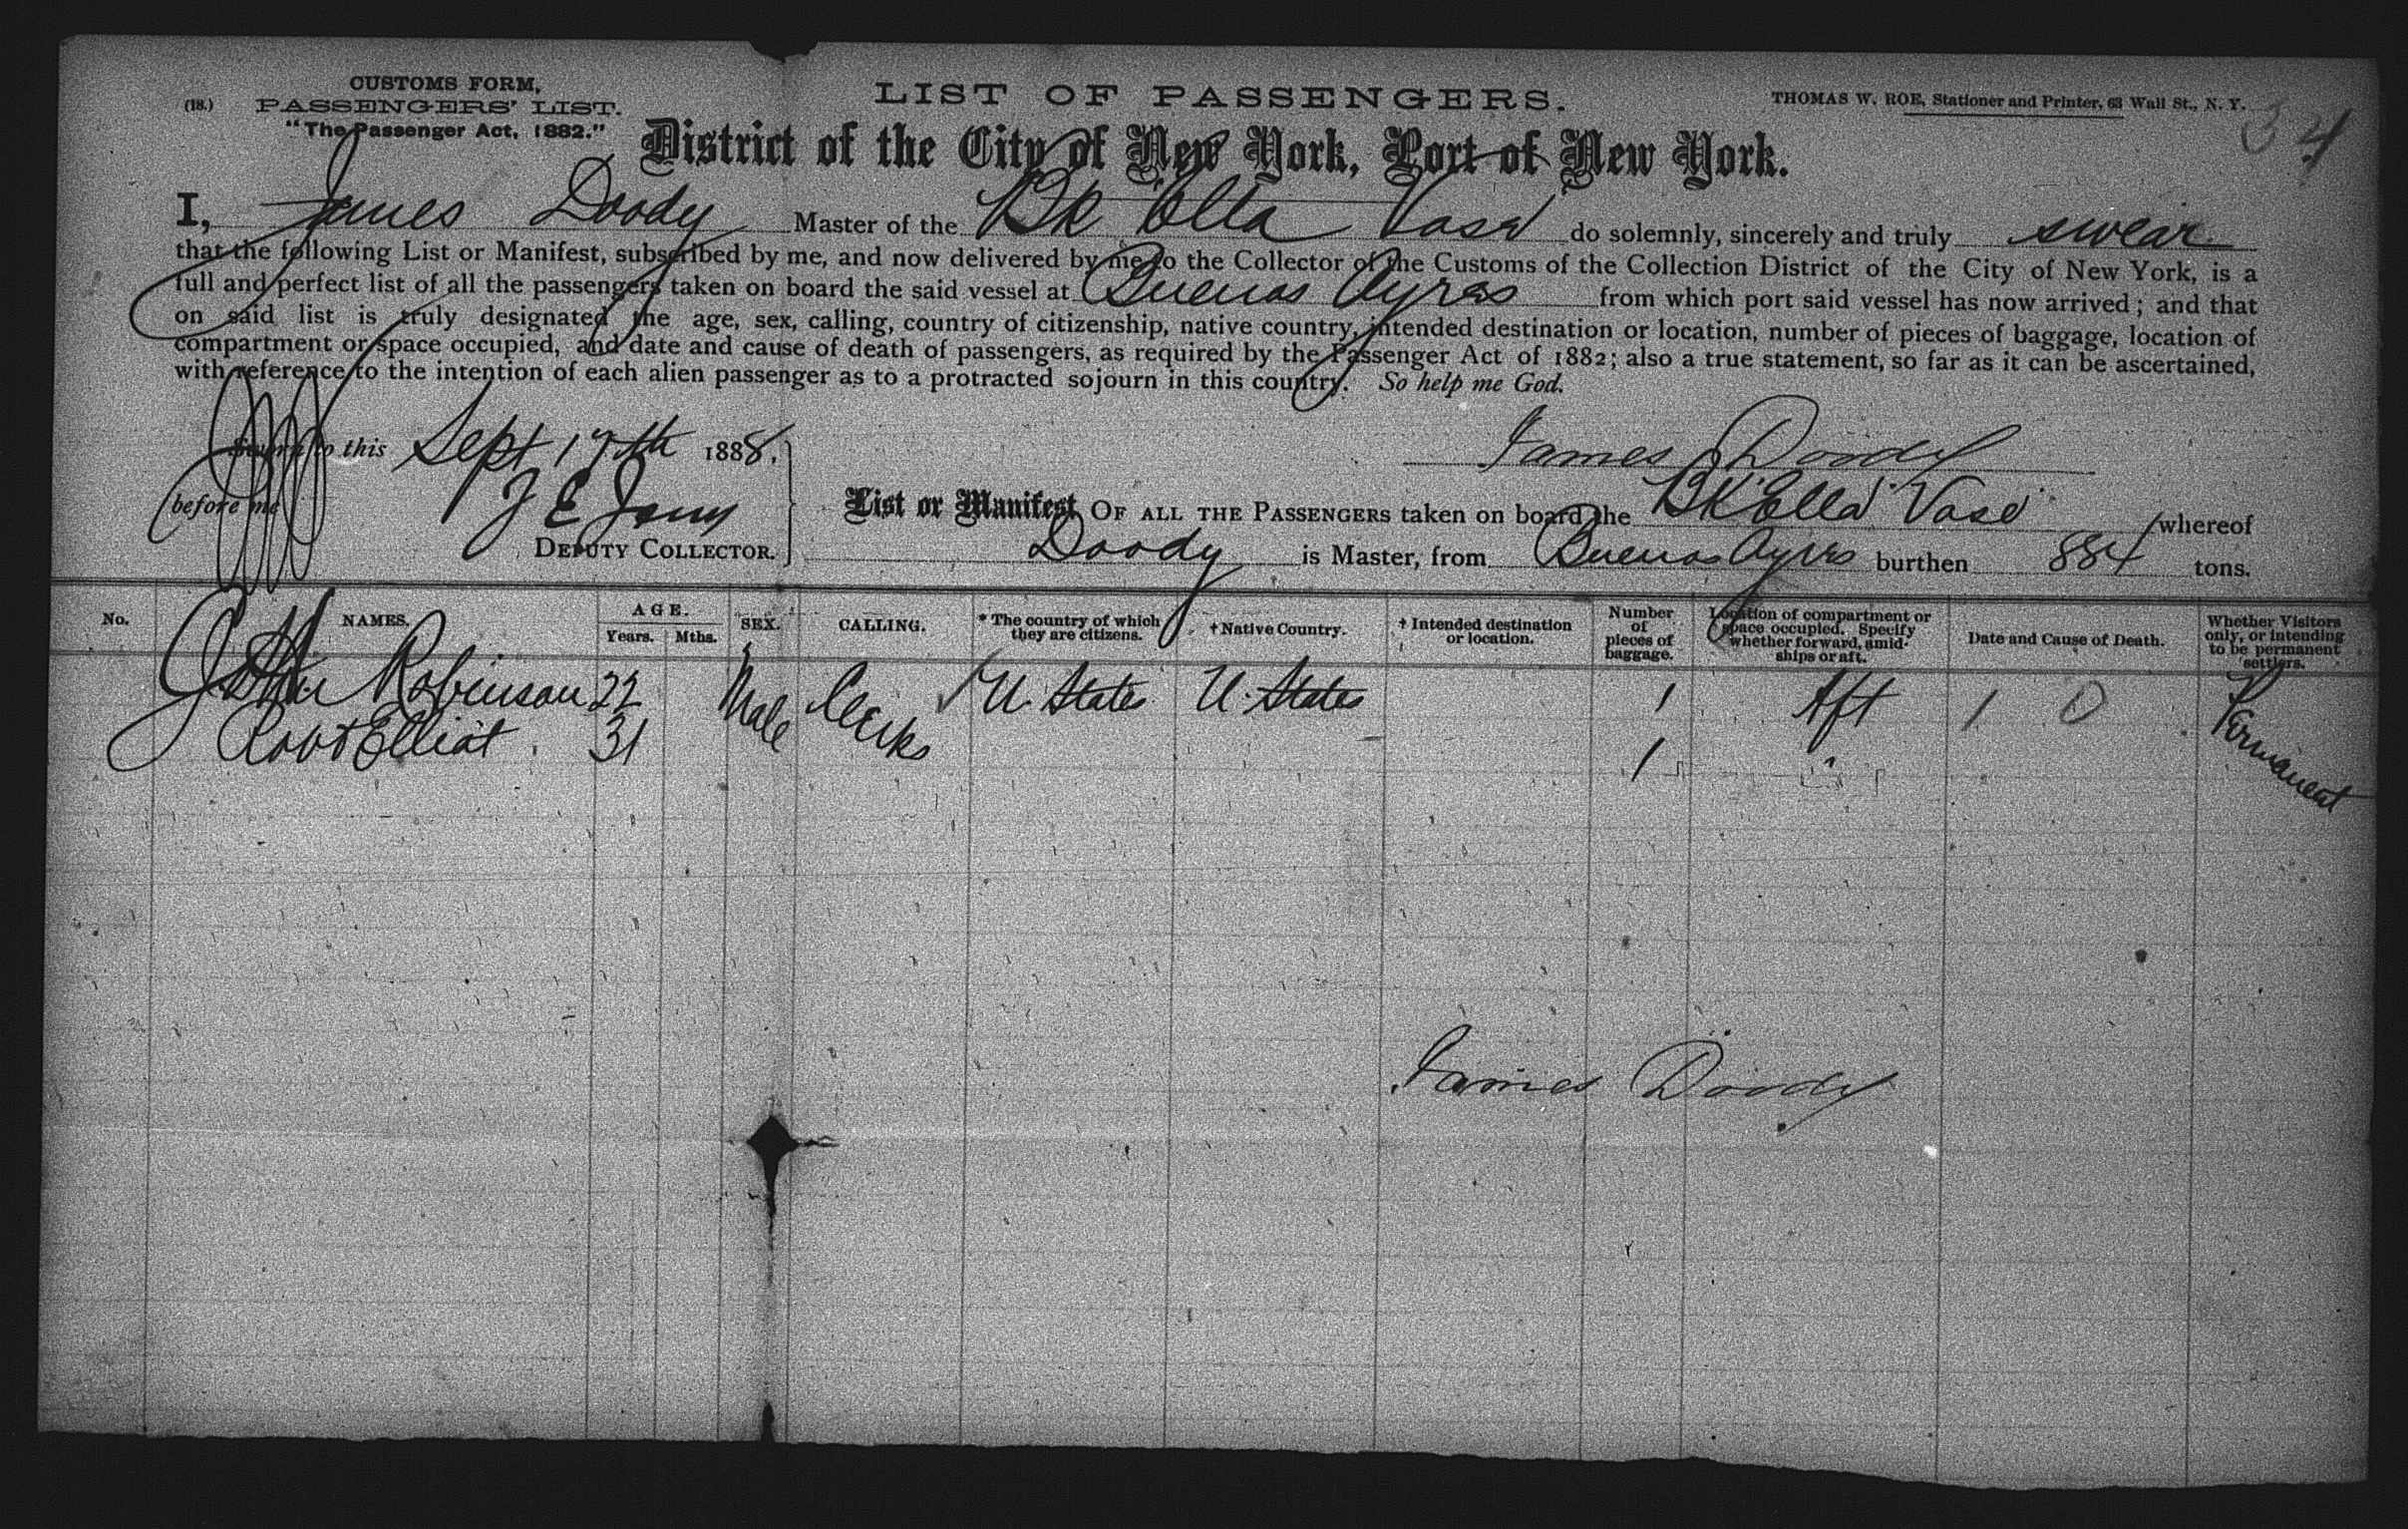 CUSTOMS FORM,
(18.) PASSENGERS' LIST.
"The Passenger Act, 1882."
LIST OF PASSENGERS.
THOMAS W. ROE, Stationer and Printer, 63 Wall St., N. Y.
34
District of the City of New York, Port of New York.
I, James Doody Master of the Bk Ella Vose do solemnly, sincerely and truly swear
that the following List or Manifest, subscribed by me, and now delivered by me to the Collector of the Customs of the Collection District of the City of New York, is a
full and perfect list of all the passengers taken on board the said vessel at Buenos Ayres from which port said vessel has now arrived; and that
on said list is truly designated the age, sex, calling, country of citizenship, native country, intended destination or location, number of pieces of baggage, location of
compartment or space occupied, and date and cause of death of passengers, as required by the Passenger Act of 1882; also a true statement, so far as it can be ascertained,
with reference to the intention of each alien passenger as to a protracted sojourn in this country. So help me God.
Sworn to this Sept 17th 1888.
James Doody
before me
DEPUTY COLLECTOR.
List or Manifest OF ALL THE PASSENGERS taken on board the Bk Ella Vose whereof
Doody is Master, from Buenos Ayres burthen 884 tons.
No. NAMES. AGE. Years. Mths. SEX. CALLING. * The country of which they are citizens. † Native Country. † Intended destination or location. Number of pieces of baggage. Location of compartment or space occupied. Specify whether forward, amidships or aft. Date and Cause of Death. Whether Visitors only, or intending to be permanent settlers.
Robinson 22 Male Clerks U. States U. States 1 Aft 1 0 Permanent
Robt Elliot 31 1 "
James Doody